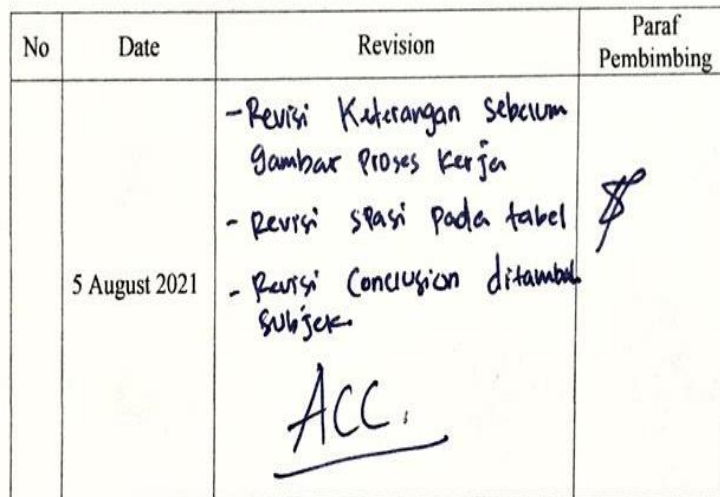 No Date Revision Paraf
Pembimbing
- Revisi Keterangan Sebelum
gambar Proses Kerja
- Revisi spasi pada tabel
5 August 2021
- Revisi Conclusion ditambah
subjek
ACC.